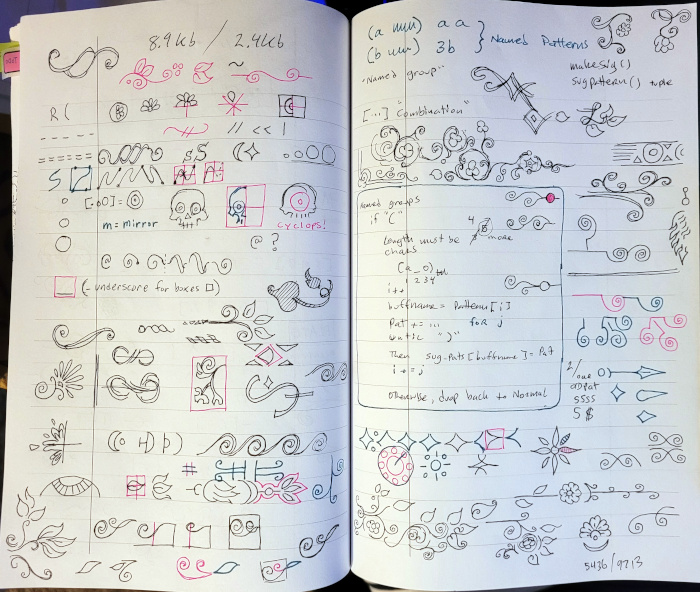 8.9kb / 2.4kb
R (
// << |
S S
[.oO] =
m = mirror
cyclops!
@ ?
(- underscore for boxes □
#
(a
a a
(b
3b
} Named Patterns
"Named group"
makeSvg()
svgPattern() tuple
[...] "Combination"
Named groups
if "("
Length must be
4
more
chars
(a _ 0)
1 2 3 4
i++
buffname = Pattern[i]
Pat += ... for j
until ")"
Then svg-pats[buffname] = Pat
i += j
otherwise, drop back to Normal
ssss
5 $
5436 / 9213